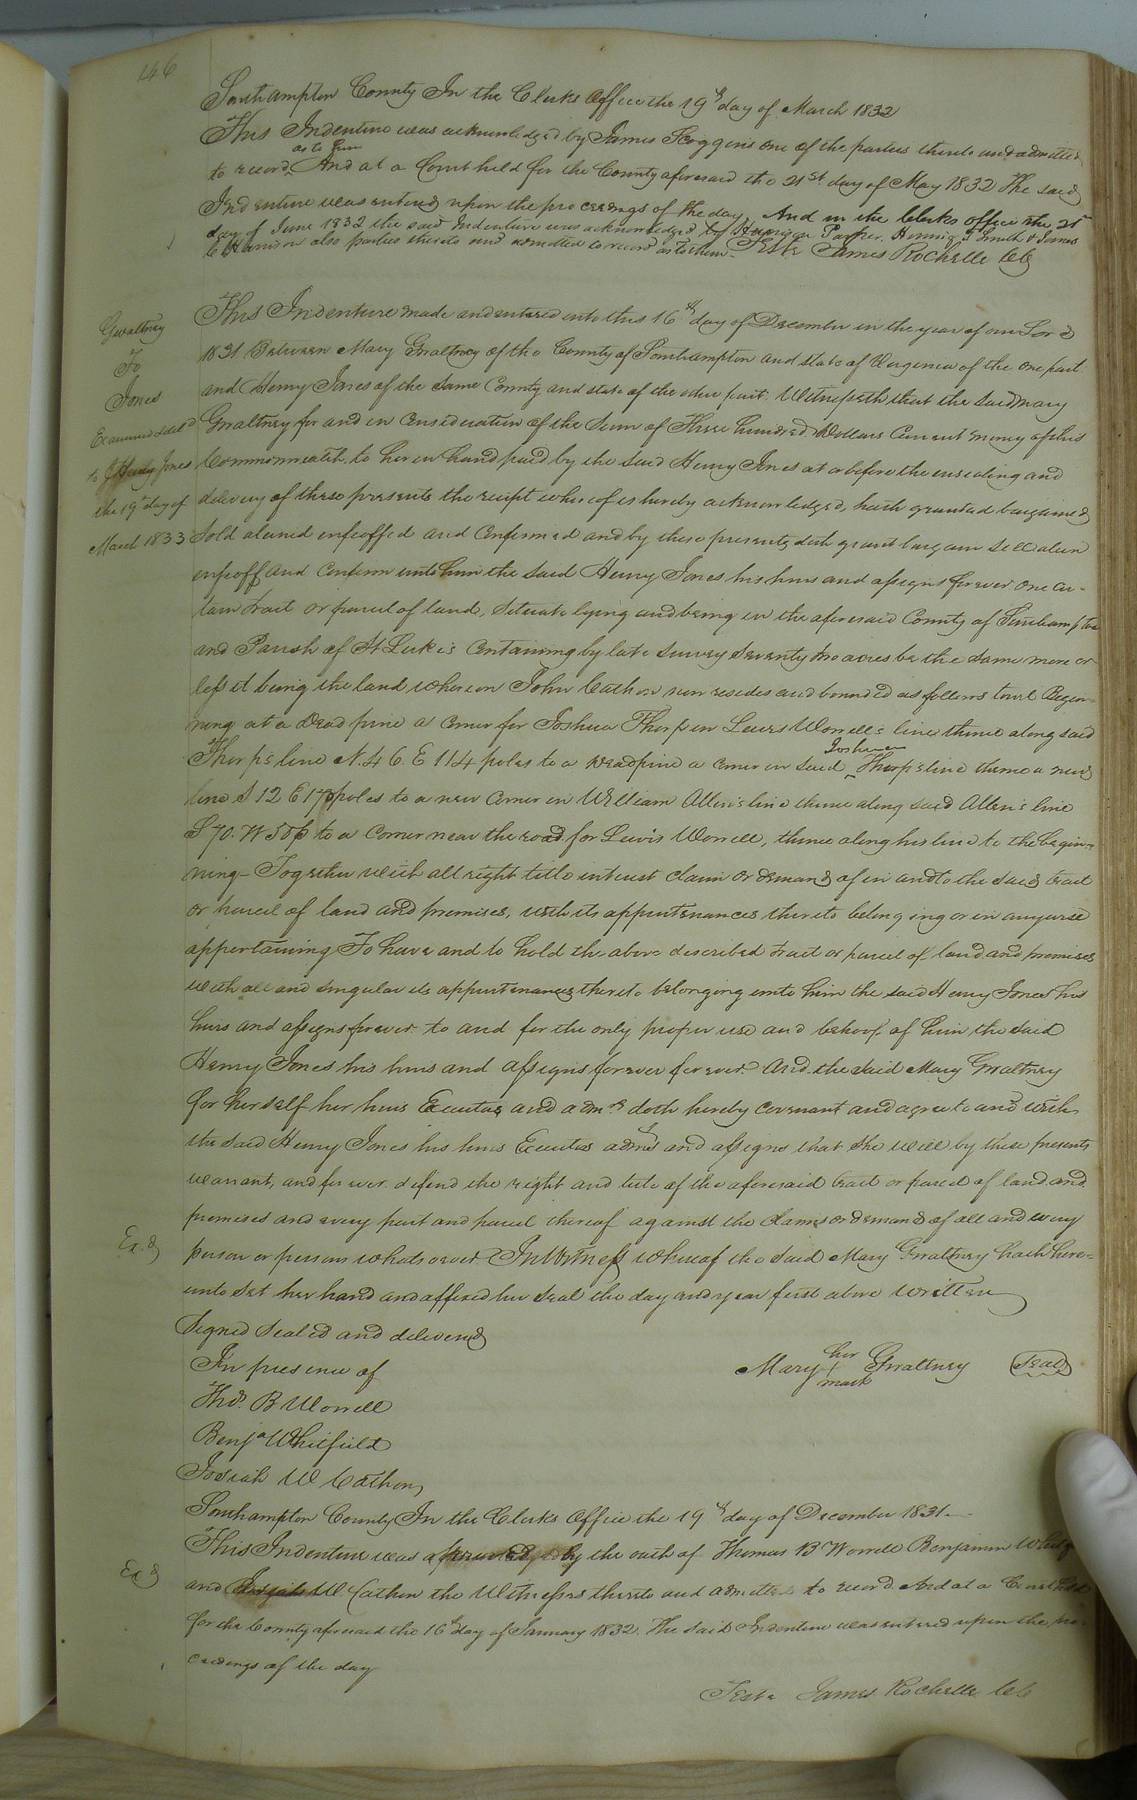 146
Southampton County In the Clerks Office the 19th day of March 1832
This Indenture was acknowledged by James Scoggins one of the parties thereto and admitted
as to him
to record, And at a Court held for the County aforesaid the 21st day of May 1832 The said
Indenture was entered upon the proceedings of the day, And in the Clerks office the 21st
day of June 1832 the said Indenture was acknowledged by Parker, Smith & James
C Harrison also parties thereto and admitted to record as to them - Teste James Rochelle CC
Gwaltney
To
Jones
Examined & deld
to Henry Jones
the 19th day of
March 1833
This Indenture made and entered into this 16th day of December in the year of our Lord
1831 Between Mary Gwaltney of the County of Southampton and state of Virginia of the one part
and Henry Jones of the same County and state of the other part. Witnesseth that the said Mary
Gwaltney for and in Consideration of the Sum of Three hundred Dollars Current money of this
Commonwealth, to her in hand paid by the said Henry Jones at or before the ensealing and
delivery of these presents the receipt whereof is hereby acknowledged, hath granted bargained
Sold aliened enfeoffed and Confirmed and by these presents doth grant bargain sell alien
enfeoff and Confirm unto him the said Henry Jones his heirs and assigns forever one cer-
tain tract or parcel of land, Situate lying and being in the aforesaid County of Southampton
and Parish of St Luke's Containing by late survey seventy two acres be the same more or
less it being the land whereon John Cathon now resides and bounded as follows towit Begin-
ning at a Dead pine a Corner for Joshua Thorp in Lewis Worrell's line thence along said
Joshua
Thorp's line N. 46. E 114 poles to a dead pine a corner in said Thorp's line thence a new
line S 12 E poles to a new Corner in William Allen's line thence along said Allen's line
S 70. W to a Corner near the road for Lewis Worrell, thence along his line to the begin-
ning - Together with all right title interest claim or demand of in and to the said tract
or parcel of land and premises, with its appurtenances thereto belonging or in anywise
appertaining To have and to hold the above described tract or parcel of land and premises
with all and singular its appurtenances thereto belonging unto him the said Henry Jones his
heirs and assigns forever. to and for the only proper use and behoof of him the said
Henry Jones his heirs and assigns forever for ever. And the said Mary Gwaltney
for herself her heirs Executors and admrs doth hereby covenant and agree to and with
the said Henry Jones his heirs Executors admrs and assigns that she will by these presents
warrant, and for ever defend the right and title of the aforesaid tract or parcel of land and
premises and every part and parcel thereof against the claims or demand of all and every
Ex.d
person or persons whatsoever. In Witness whereof the said Mary Gwaltney hath here=
unto set her hand and affixed her seal the day and year first above written
Signed Sealed and delivered
In presence of
her
Mary + Gwaltney Seal
mark
Thos. B Worrell
Benja Whitfield
Josiah W Cathon
Southampton County In the Clerks Office the 19th day of December 1831.
This Indenture was by the oath of Thomas B Worrell Benjamin
Exd
and Josiah W Cathon the Witnesses thereto and admitted to record. And at a Court held
for the County aforesaid the 16th day of January 1832. The said Indenture was entered upon the pro-
ceedings of the day
Teste James Rochelle CC